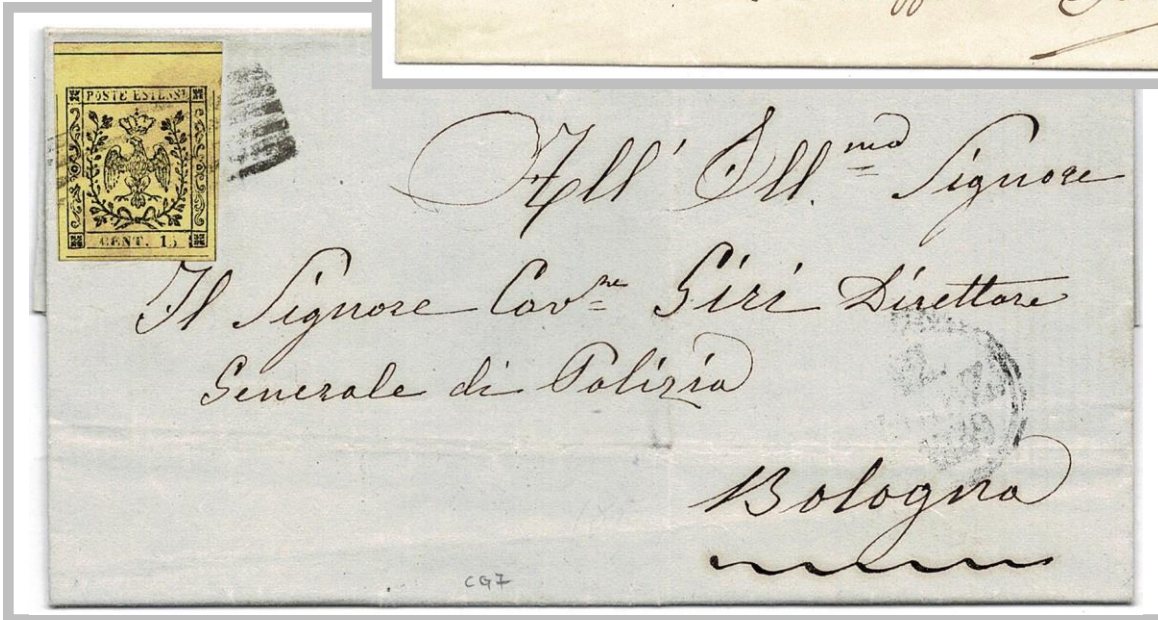 POSTE ESTENSI
CENT. 15
All' Ill.mo Signore
Il Signore Cav.re Siri Direttore
Generale di Polizia
Bologna
CG7